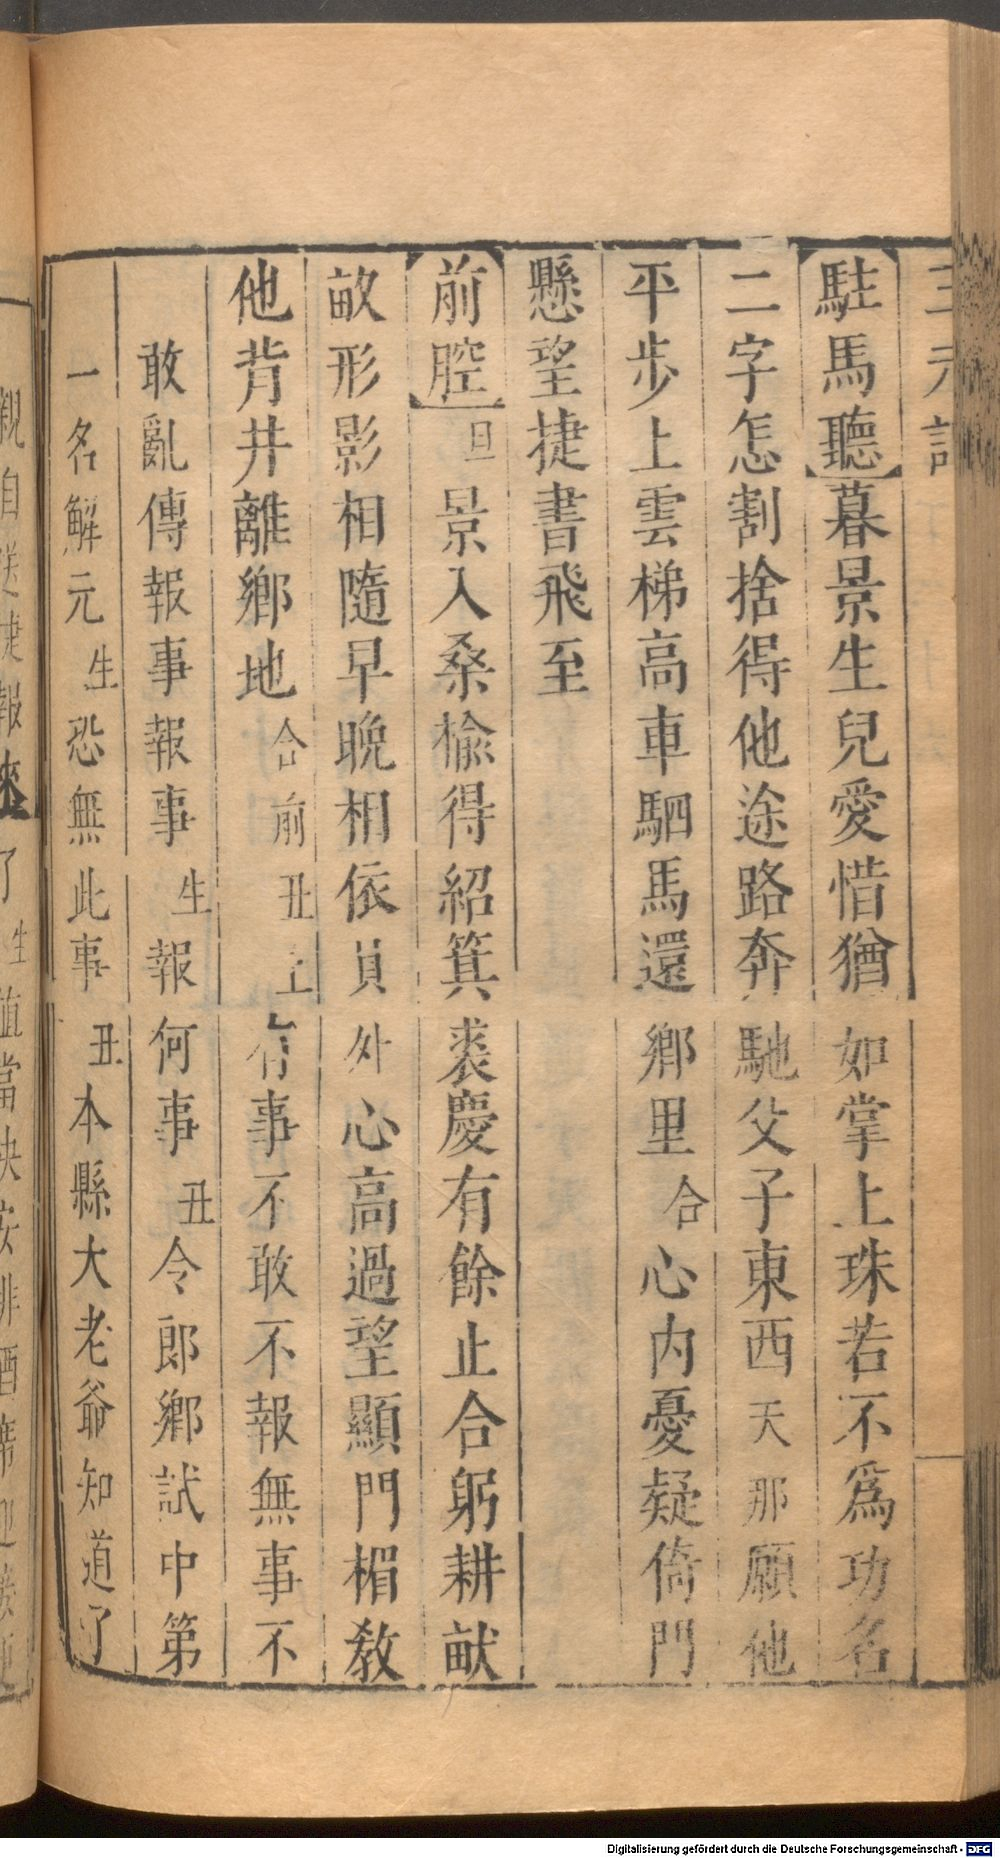 三元記
駐馬聽暮景生兒愛惜猶如掌上珠若不爲功名
二字怎割捨得他途路奔馳父子東西天那願他
平步上雲梯高車駟馬還鄉里合心内憂疑倚門
懸望捷書飛至
前腔旦景入桑榆得紹箕裘慶有餘止合躬耕畎
畝形影相隨早晚相依員外心高過望顯門楣敎
他背井離鄉地合前丑上有事不敢不報無事不
敢亂傳報事報事生報何事丑令郎鄉試中第
一名解元生恐無此事丑本縣大老爺知道了
親自送捷報來了生
Digitalisierung gefördert durch die Deutsche Forschungsgemeinschaft - DFG